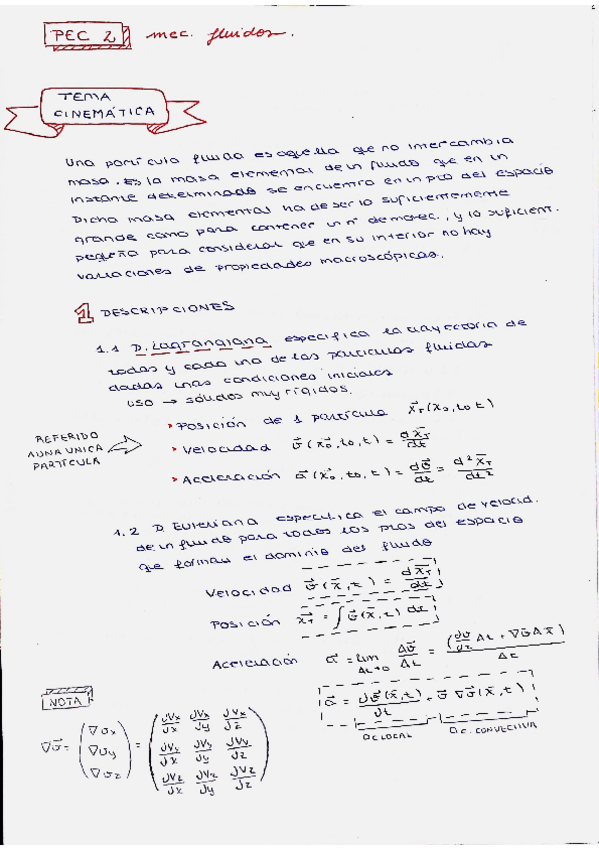 PEC 2 mec. fluidos.
TEMA
CINEMÁTICA
Una partícula fluida es aquella que no intercambia
masa. Es la masa elemental de un fluido que en un
instante determinado se encuentra en un pto del espacio
Dicha masa elemental ha de ser lo suficientemente
grande como para contener un nº de molec., y lo suficient.
pequeña para considerar que en su interior no hay
variaciones de propiedades macroscópicas.
1 DESCRIPCIONES
1.1 D. Lagrangiana especifica la trayectoria de
todas y cada una de las partículas fluidas
dadas unas condiciones iniciales
USO → sólidos muy rígidos.
REFERIDO
A UNA UNICA
PARTÍCULA
› Posición de 1 partícula x⃗_T(x₀, t₀, t)
› Velocidad v⃗(x⃗₀, t₀, t) = dx⃗_T/dt
› Aceleración a⃗(x⃗₀, t₀, t) = dv⃗/dt = d²x⃗_T/dt²
1.2 D. Euleriana especifica el campo de velocid.
de un fluido para todos los ptos del espacio
que forman el dominio del fluido
Velocidad v⃗(x⃗, t) = dx⃗_T/dt
Posición x⃗_T = ∫ v⃗(x⃗, t) dt
Aceleración a⃗ = lim Δt→0 Δv⃗/Δt = (∂v⃗/∂t Δt + ∇v⃗ Δx⃗)/Δt
a⃗ = ∂v⃗(x⃗, t)/∂t + v⃗ ∇v⃗(x⃗, t)
ac LOCAL ac. CONVECTIVA
NOTA
∇v⃗ = (∇vx ∇vy ∇vz) = (∂Vx/∂x ∂Vx/∂y ∂Vx/∂z
∂Vy/∂x ∂Vy/∂y ∂Vy/∂z
∂Vz/∂x ∂Vz/∂y ∂Vz/∂z)